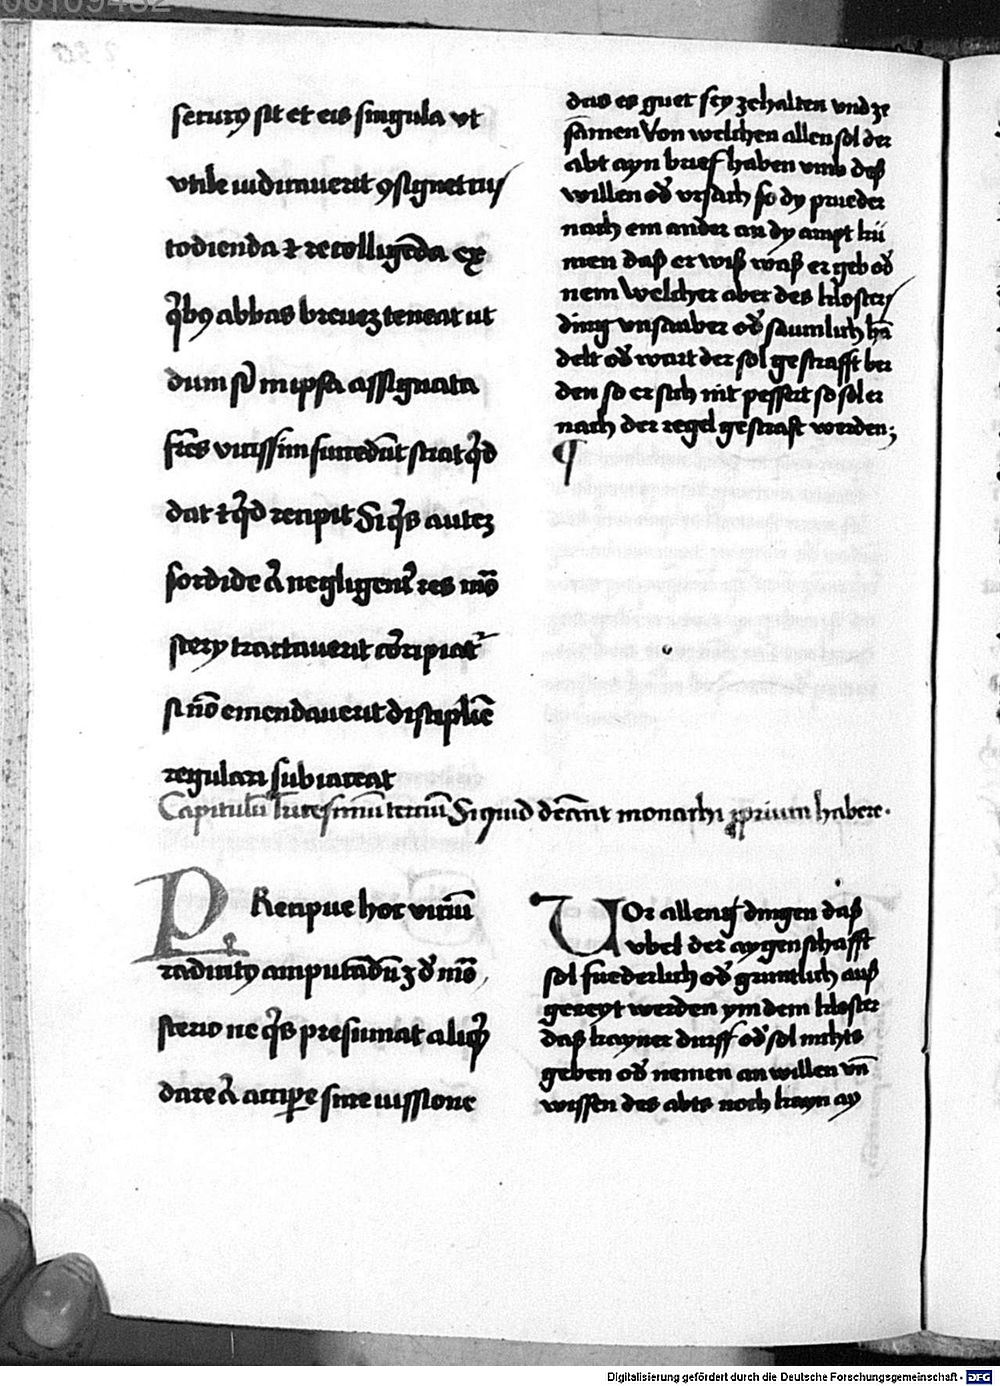 securus sit et eis singula vt
vtile iudicauerit ꝯsignet cus
todienda et recolligēda ex
q̄bꝰ abbas breueʒ teneat ut
dum sibi in ipsa assignata
fr̄es vicissim succedūt sciat qͥd
dat et qͥd recipit Si qͥs auteʒ
sordide aut negligent̄ res mōa
stery tractauerit corripiat᷑
si nō emendauerit discipline
regulari subiaceat
das es guet sey zehalten vnd ze
samen Von welchen allen sol der
abt ayn brief haben vmb deß
willen od̄ vrsach so dy prueder
nach ein ander an dy ampt kū
men daß er wiß waß er geb od̄
nem Welcher aber des kloster
ding vnsauber od̄ saumlich hā
delt od̄ wart der sol gestrafft ber
den so er sich nit pessert so sol er
nach der regel gestraft werden;
¶
Capitulū tricesimū terciū Si quid debeant monachi ꝓprium habere.
PRecipue hoc viciū
radicitꝰ amputādūʒ est de mōa
sterio ne qͥs presumat aliqͥd
dare aut accipꝑe sine iussione
VOr allen dingen daß
vbel der aygenschafft
sol fuederlich od̄ gruntlich auß
gereyt werden ym dem kloster
daß kayner durff od̄ sol nichts
geben od̄ nemen an willen vn̄
wissen des abts noch kayn ay
Digitalisierung gefördert durch die Deutsche Forschungsgemeinschaft - DFG